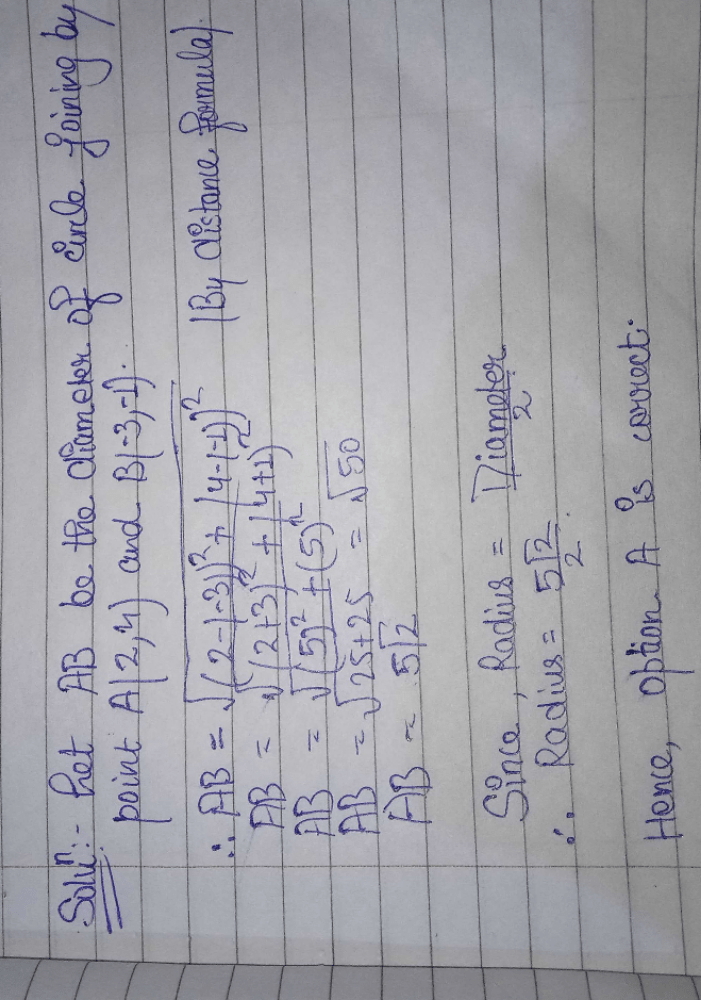 Solun:- Let AB be the diameter of circle joining by
point A(2,4) and B(-3,-1).
∴ AB = √(2-(-3))² + (4-(-1))² (By distance formula)
AB = √(2+3)² + (4+1)²
AB = √(5)² + (5)²
AB = √25+25 = √50
AB = 5√2
Since, Radius = Diameter/2
∴ Radius = 5√2/2.
Hence, option A is correct.